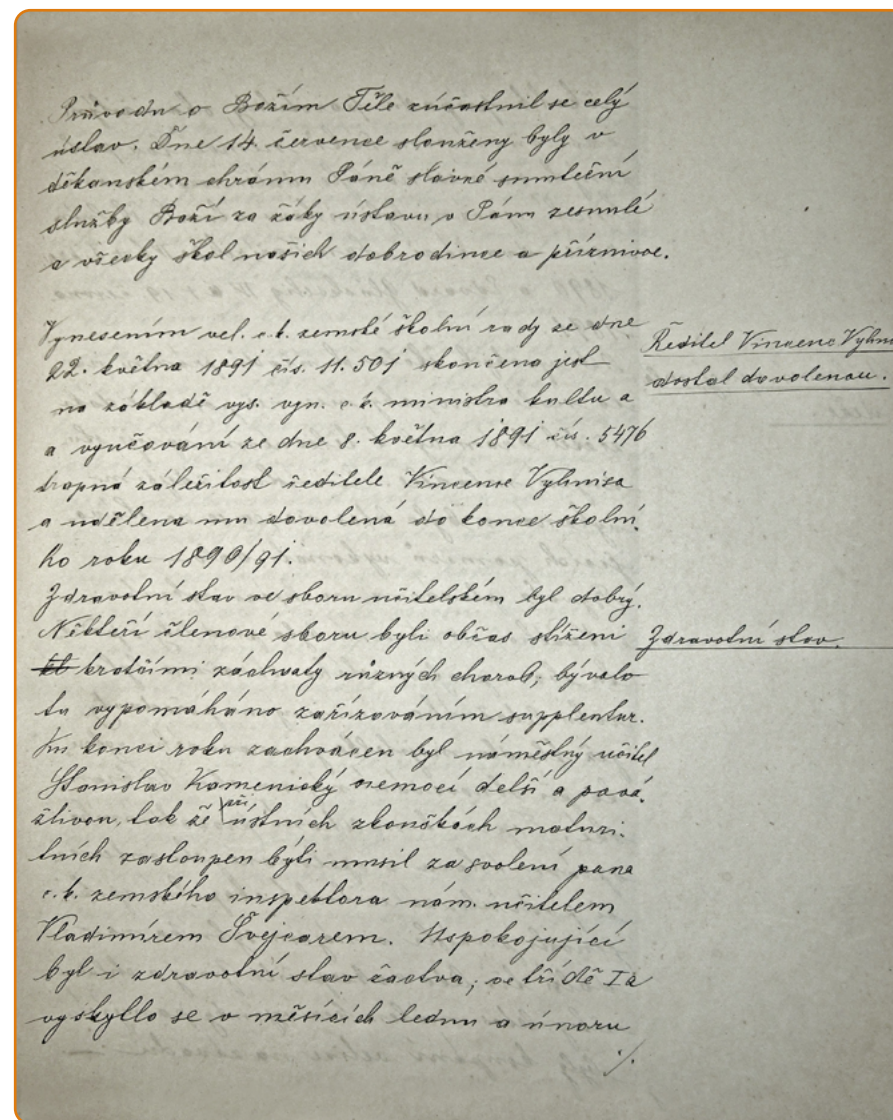 Průvodu o Božím Těle zúčastnil se celý
ústav. Dne 14. července slouženy byly v
děkanském chrámu Páně slavné smuteční
služby Boží za žáky ústavu v Pánu zesnulé
a všecky škol našich dobrodince a příznivce.
Vynesením vel. c. k. zemské školní rady ze dne
22. května 1891 čís. 11.501 skončena jest
na základě vys. vyn. c. k. ministra kultu a
a vyučování ze dne 8. května 1891 čís. 5476
trapná záležitost ředitele Vincence Vyhnisa
a udělena mu dovolená do konce školní-
ho roku 1890/91.
Ředitel Vincenc Vyhni
dostal dovolenou.
Zdravotní stav ve sboru učitelském byl dobrý.
Někteří členové sboru byli občas stíženi
kratšími záchvaty různých chorob; bývalo
tu vypomáháno zařizováním supplentur.
Ku konci roku zachvácen byl náměstný učitel
Stanislav Kamenický nemocí delší a pová-
žlivou, tak že při ústních zkouškách maturi-
tních zastoupen býti musil za svolení pana
c. k. zemského inspektora nám. učitelem
Vladimírem Švejcarem. Uspokojující
byl i zdravotní stav žactva; ve třídě Ia
vyskytlo se v měsících lednu a únoru
./.
Zdravotní stav.